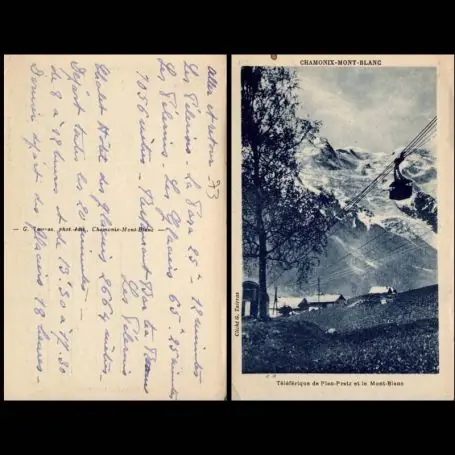 Aller et retour
Les Pélerins - La Para 25" - 12 minutes
Les Pélerins - Les Glaciers 65" - 25 minutes
1056 mètres - Restaurant Bar La
Les Pélerins
Chalet Hôtel des Glaciers 2664 mètres -
Départ toutes les 20 minutes -
de 8 à 12 heures & de 13.30 à 17.30
Dernier départ des Glaciers 18 heures -
— G. Tairraz, phot. édit., Chamonix-Mont-Blanc —
CHAMONIX-MONT-BLANC
Cliché G. Tairraz
Téléférique de Plan-Pratz et le Mont-Blanc